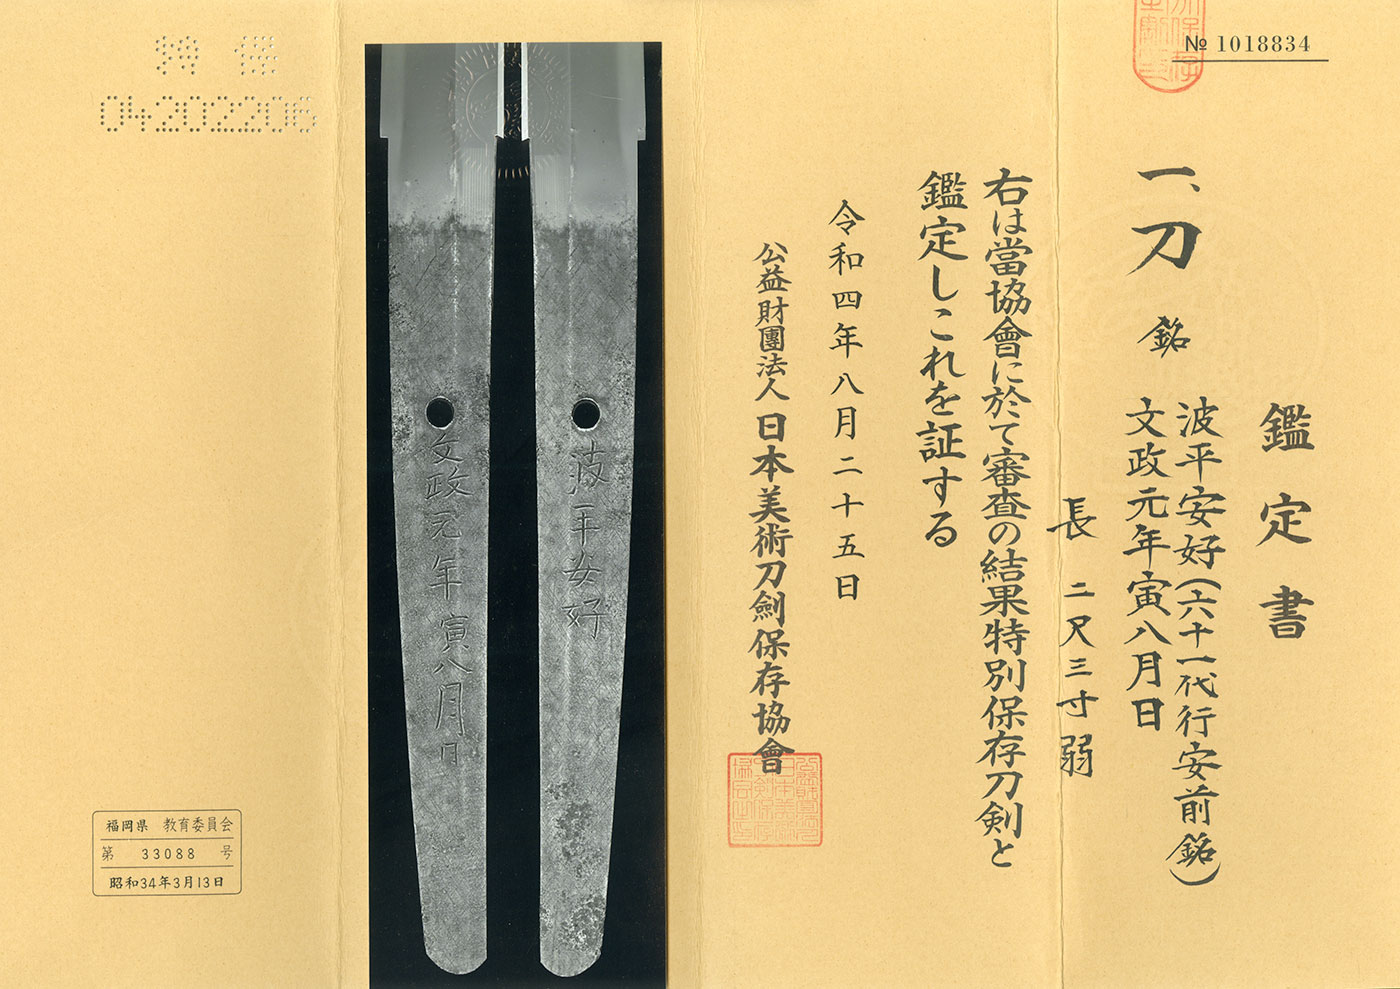 № 1018834
鑑定書
一、刀 銘 波平安好(六十一代行安前銘)
文政元年寅八月日
長 二尺三寸弱
右は當協會に於て審査の結果特別保存刀剣と
鑑定しこれを証する
令和四年八月二十五日
公益財團法人 日本美術刀劍保存協會
波平安好
文政元年寅八月日
特 保
04202206
福岡県 教育委員会
第 33088 号
昭和34年3月13日